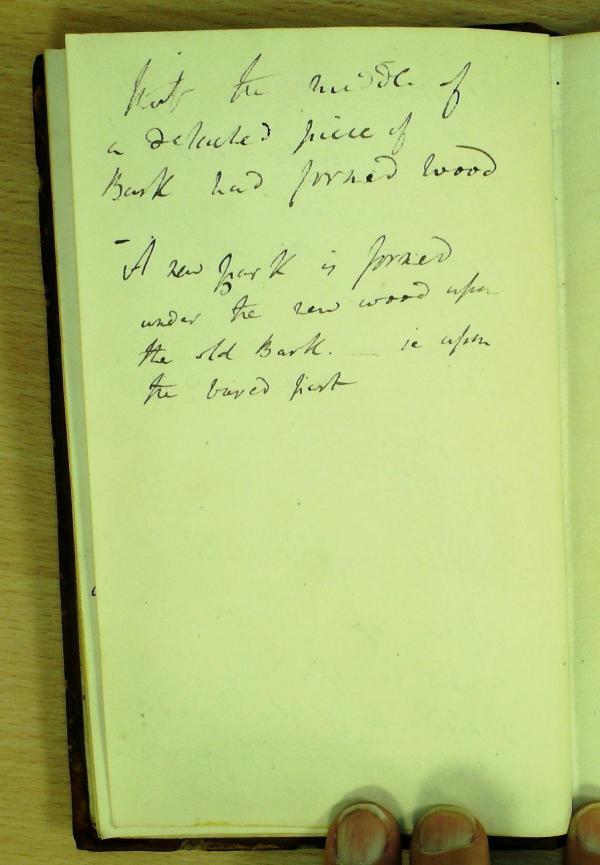 that the middle of
a detached piece of
Bark had formed wood
– A new bark is formed
under the new wood upon
the old Bark. — ie upon
the bared part